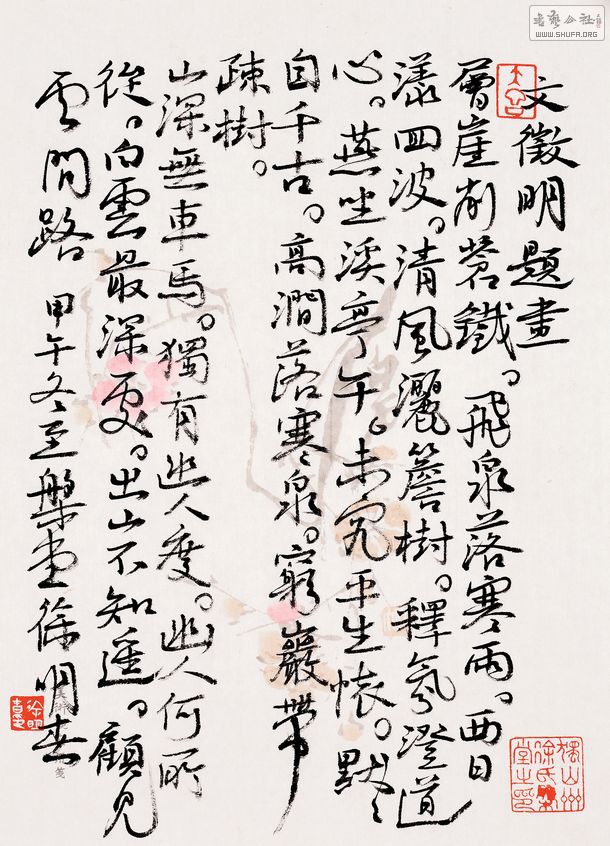 書藝公社
WWW.SHUFA.ORG
文徵明題畫
層崖削蒼鐵。飛泉落寒雨。西日
漾回波。清風灑簷樹。釋氛澄道
心。燕坐溪亭午。未究平生懷。默々
自千古。高澗落寒泉。窮巖帶
疎樹。
山深無車馬。獨有幽人度。幽人何所
從。白雲最深處。出山不知遙。顧見
雲間路 甲午冬至 徐明